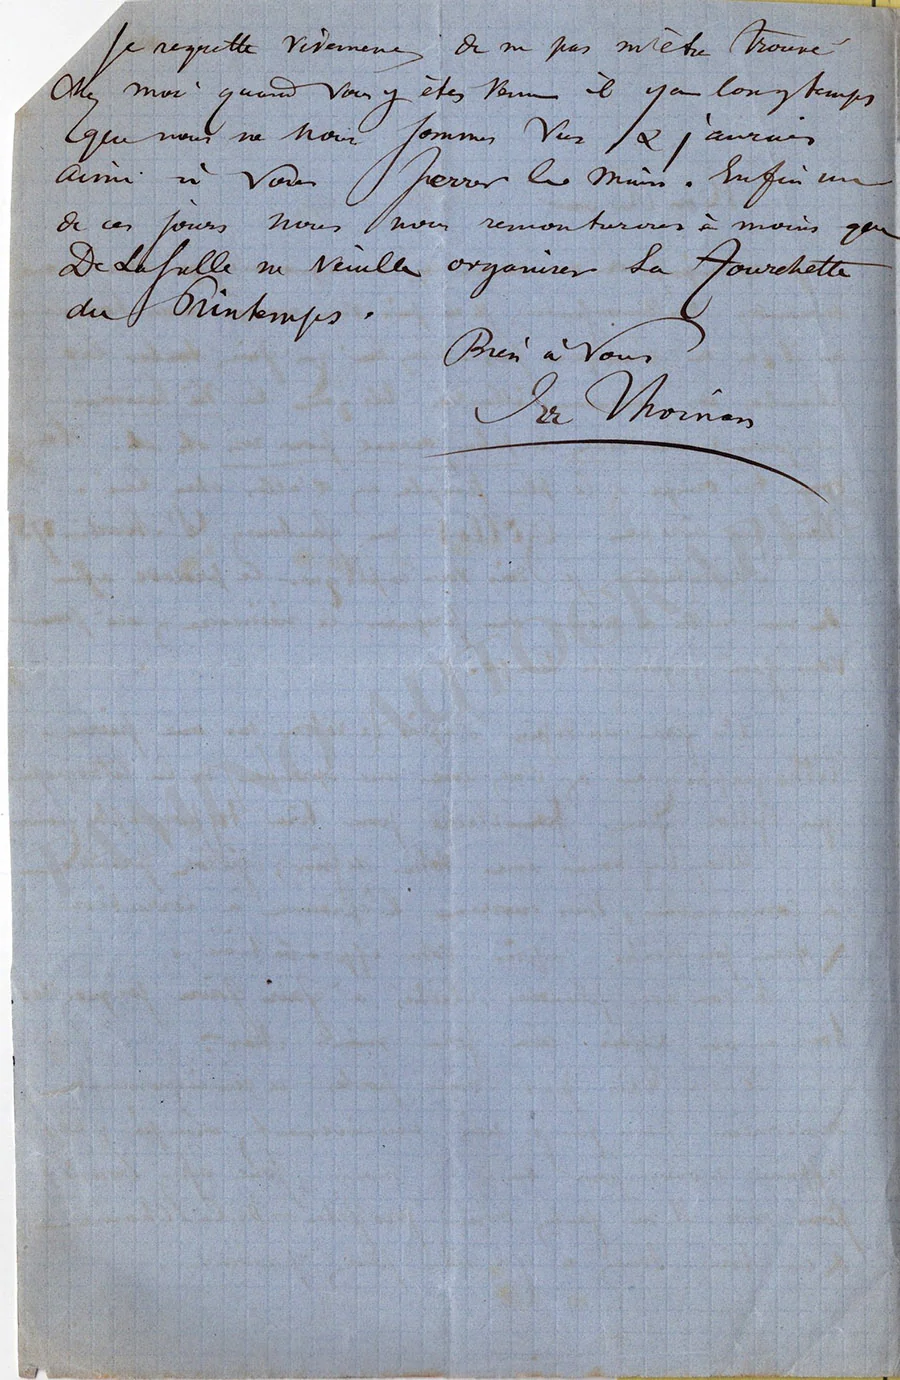 Je regrette vivement de ne pas m'être trouvé
chez moi quand vous y êtes venu il y a longtemps
que nous ne nous sommes vus & j'aurais
aimé à vous serrer la main. Enfin un
de ces jours nous nous remonterons à moins que
De LaSalle ne veuille organiser la fourchette
du Printemps.
Bien à vous
Er Thoinan